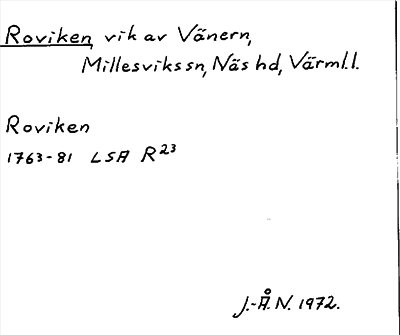 Roviken, vik av Vänern,
Millesviks sn, Näs hd, Värml. l.
Roviken
1763-81 LSA R23
J.-Å. N. 1972.